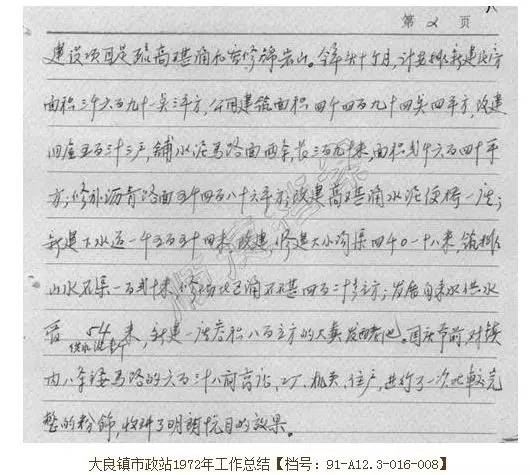 第 2 页
建设项目是 高基涌和安修锦岩山。今年头十个月,计共 新建住房
面积三千六百九十一点三平方,公用建筑面积四千四百九十四点四平方,改建
旧屋五百三十三户,铺水泥马路面两条,长三百 十米,面积式千六百四十平
方;修补沥青路面五千四百八十六平方;改建高基涌水泥便桥一座;
新建下水道一千五百五十四米,改建、修建大小沟渠四千0一十八米,筑排
山水石渠一百式十米,修 涌石基四百二十 立方;发展自来水供水
管 54 米,新建一座容积八百立方的大粪发酵池。国庆节前,对镇
供水 
内八条矮马路的六百三十八间商 、工厂、机关、住户,进行了一次比较完
整的粉饰,收到了明朗悦目的效果。
顺德档案
大良镇市政站1972年工作总结【档号:91-A12.3-016-008】